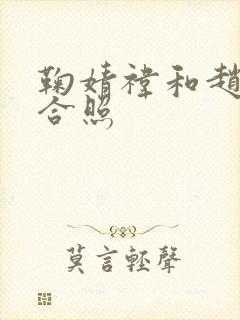 鞠婧祎和赵
合照
莫言輕聲